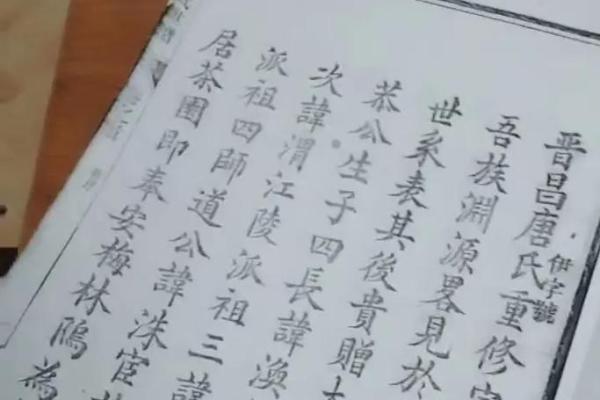 晋昌唐氏重修宗
伊字號
吾族淵源畧見於
世系表其後貴贈
恭公生子四長諱渙
次諱渭江陵派祖三諱
派祖四師道公諱洙宦
居茶園即奉安梅林隖為